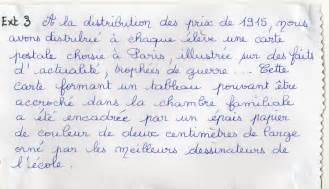 Ext 3 A la distribution des prix de 1915, nous
avons distribué à chaque élève une carte
postale choisie à Paris, illustrée sur des faits
d'actualité, trophées de guerre ... Cette
carte formant un tableau pouvant être
accroché dans la chambre familiale
a été encadrée par un épais papier
de couleur de deux centimètres de large
orné par les meilleurs dessinateurs de
l'école.